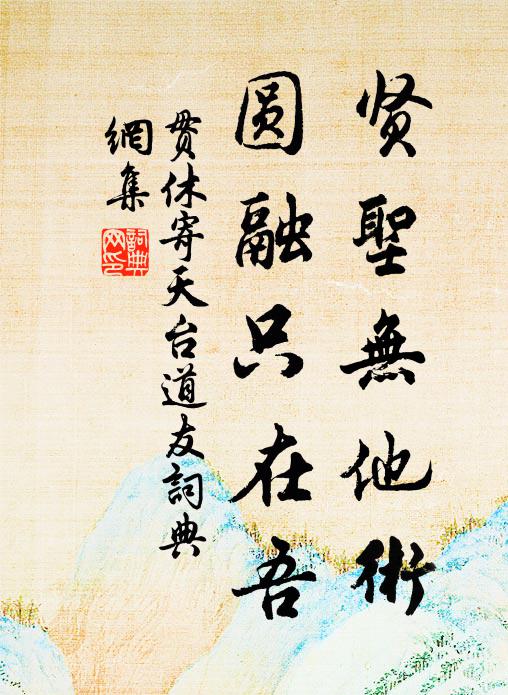 贤聖無他術
圆融只在吾
贯休寄天台道友詞典
網集
詞典
网印